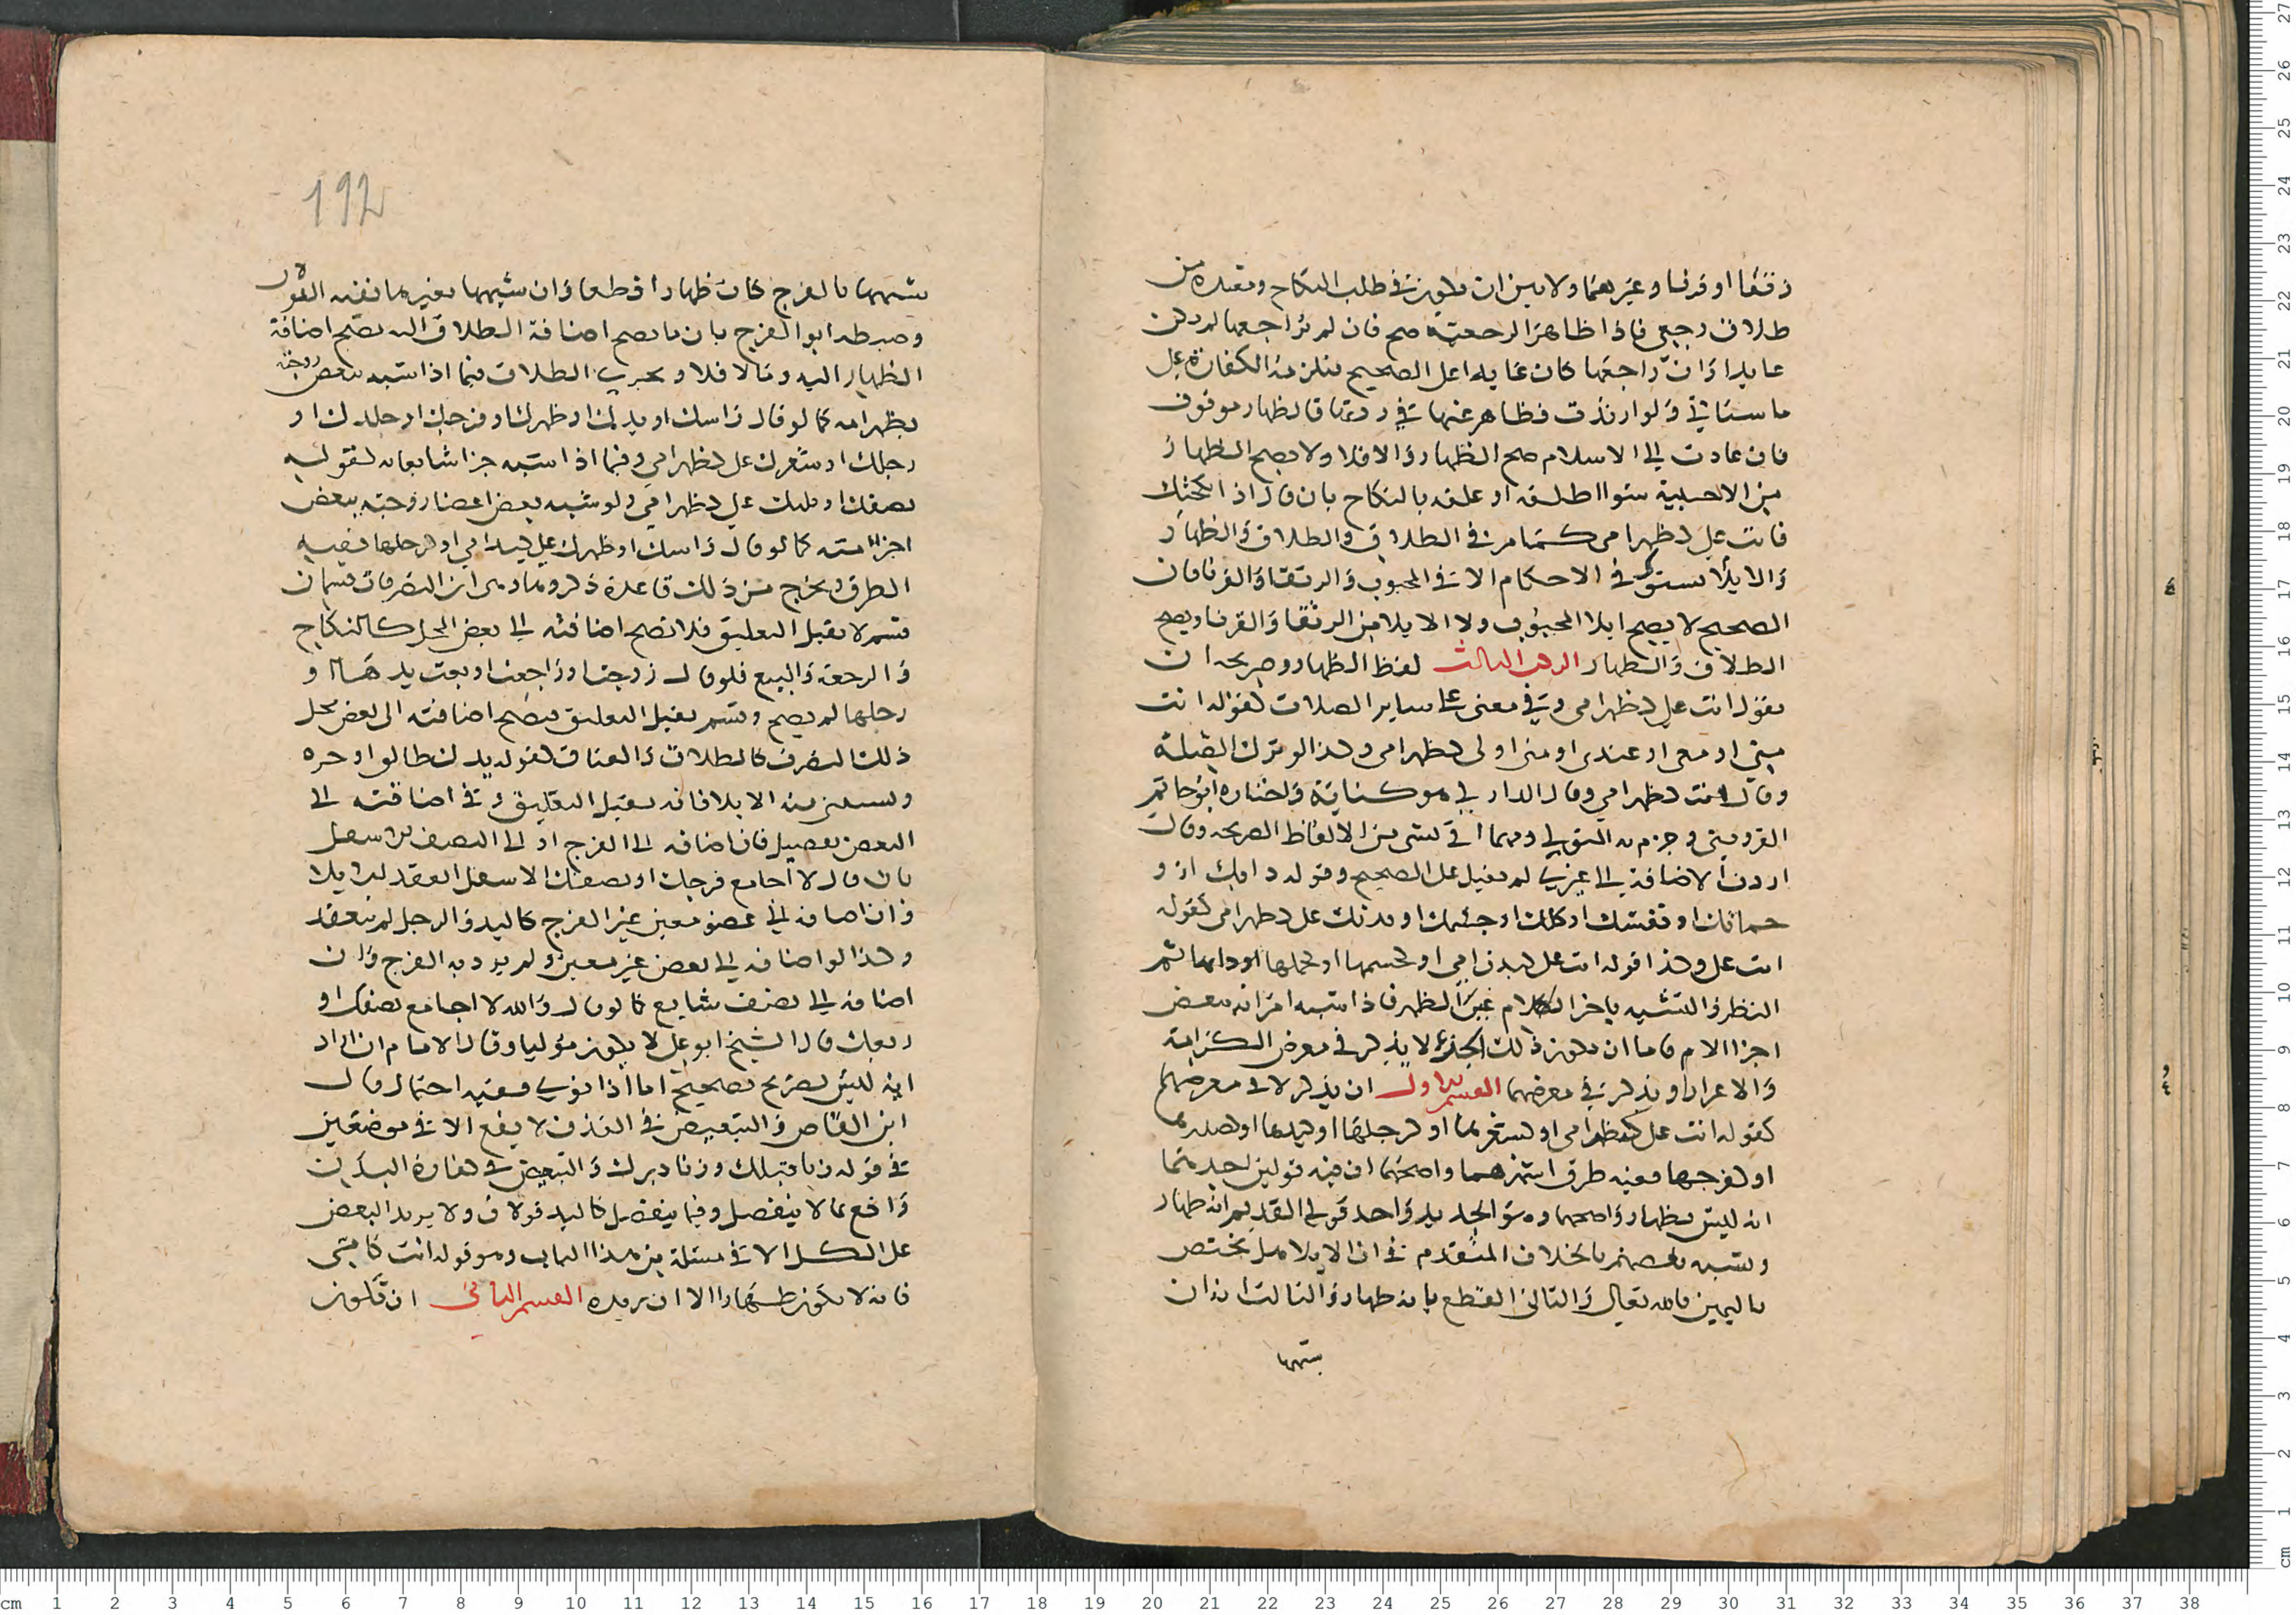 رتقا او قرنا وغيرهما ولا بين ان تكون في طلب النكاح ومعتدة من
طلاق رجعي فاذا ظاهر الرجعية صح فان لم يراجعها لم يكن
عايدا وان راجعها كان عايدا على الصحيح فتلزمه الكفارة على
ما سياتي ولو ارتدت فظاهر عنها في ردتها فالظهار موقوف
فان عادت الى الاسلام صح الظهار والا فلا ولا يصح الظهار
من الاجنبية سوا اطلقه او علقه بالنكاح بان قال اذا نكحتك
فانت علي كظهر امي كما مر في الطلاق والطلاق والظهار
والايلا يستوي في الاحكام الا في المجبوب والرتقا والقرنا فان
الصحيح لا يصح ايلا المجبوب ولا الايلا من الرتقا والقرنا ويصح
الطلاق والظهار الركن الثالث لفظ الظهار وصريحه ان
يقول انت علي كظهر امي وفي معنى علي ساير الصلات كقوله انت
مني او معي او عندي او مني او لي كظهر امي وكذا لو ترك الصلة
وقال انت كظهر امي وقال الداركي هو كناية واختاره ابو حاتم
القزويني وجزم به المتولي ومهما اتى بشي من الالفاظ الصريحة وقال
اردت الاضافة الى غيري لم يقبل على الصحيح وقوله ذاتك او
جسمك او نفسك او كلك او جثتك او بدنك علي كظهر امي كقوله
انت علي وكذا قوله انت علي كبدن امي او كجسمها او كجملها او ذاتها ثم
النظر في التشبيه باجزا الام غير الظهر فاذا شبه امراته ببعض
اجزا الام فاما ان يكون ذلك الجزء لا يذكر في معرض الكرامة
والاعزاز او يذكر في معرضهما القسم الاول ان يذكر لا في معرضهما
كقوله انت علي كبطن امي او كشعرها او كرجلها او كيدها او كصدرها
او كفرجها ففيه طرق اشهرهما واصحهما ان فيه قولين احدهما
انه ليس بظهار واصحهما وهو الجديد واحد قولي القديم انه ظهار
وشبه بعضهم بالخلاف المتقدم في ان الايلا هل يختص
باليمين بالله تعالى والثاني القطع بانه ظهار والثالث انه ان
شبهها
192
شبهها بالفرج كان ظهارا قطعا وان شبهها بغيرها ففيه القولان
وضبطه ابو الفرج بان ما يصح اضافة الطلاق اليه يصح اضافة
الظهار اليه وما لا فلا ويجري الطلاق فيما اذا شبه بعض زوجته
بظهر امه كما لو قال راسك او يدك او ظهرك او فرجك او جلدك او
رجلك او شعرك علي كظهر امي وفيما اذا شبه جزا شايعا به كقوله
نصفك او ثلثك علي كظهر امي ولو شبه بعض اعضا زوجته ببعض
اجزا امه كما لو قال راسك او ظهرك علي كيد امي او كرجلها ففيه
الطرق ويخرج من ذلك قاعدة ان التصرفات قسمان
قسم لا يقبل التعليق فلا تصح اضافته الى بعض المحل كالنكاح
والرجعة والبيع فلو قال زوجتك او راجعت او بعت يدها او
رجلها لم يصح وقسم يقبل التعليق فيصح اضافته الى بعض محل
ذلك التصرف كالطلاق والعتاق كقوله يدك طالق او حره
ويستثنى منه الايلا فانه يقبل التعليق وفي اضافته الى
البعض تفصيل فان اضافه الى الفرج او الى النصف الاسفل
بان قال لا اجامع فرجك او نصفك الاسفل انعقد الايلا
وان اضافه الى عضو معين غير الفرج كاليد والرجل لم ينعقد
وكذا لو اضافه الى بعض غير معين ولم يرد به الفرج وان
اضافه الى نصف شايع كما لو قال والله لا اجامع نصفك او
ربعك قال الشيخ ابو علي لا يكون موليا وقال الامام ان اراد
انه ليس بصريح فصحيح اما اذا نوى ففيه احتمال قال
ابن القاص والتبعيض في القذف لا يقع الا في موضعين
في قوله زنا قبلك وزنا دبرك والتبعيض في كفارة البدن
واقع مما لا ينفصل وفيما ينفصل كاليد قولان ولا يزيد البعض
على الكل الا في مسئلة من هذا الباب وهو قوله انت كامي
فانه لا يكون ظهارا الا ان يريده القسم الثاني ان تكون